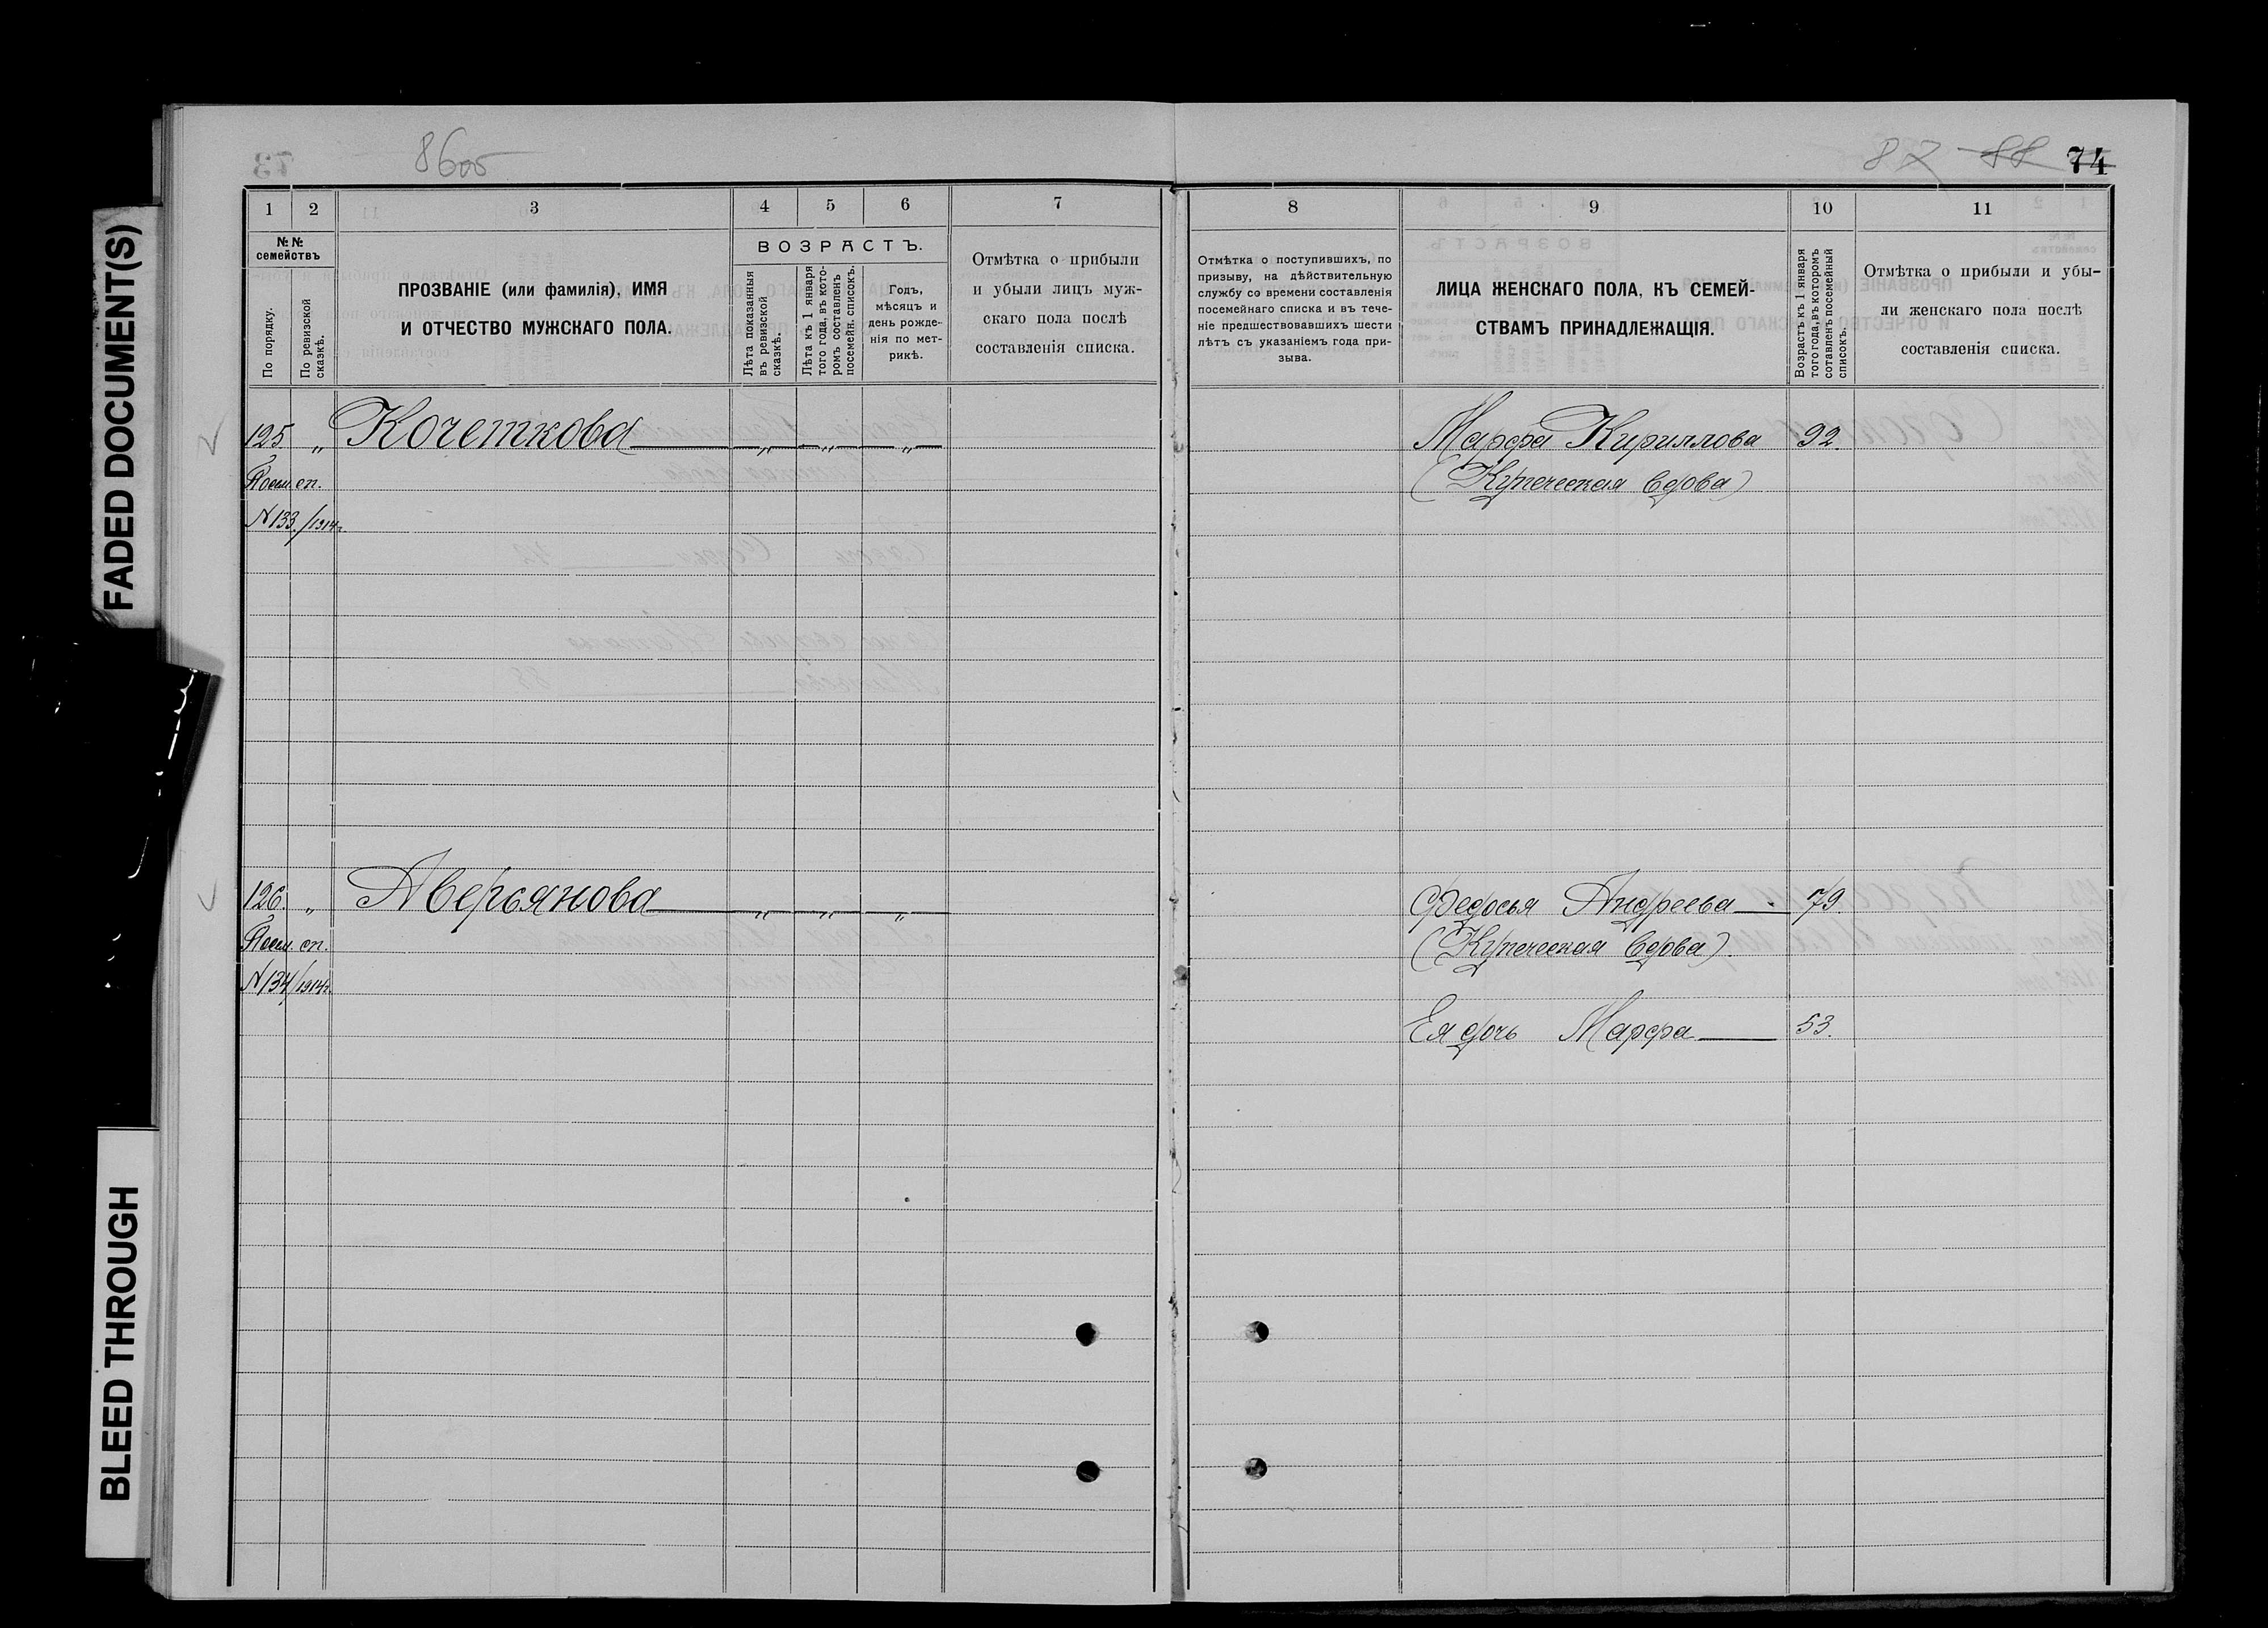 FADED DOCUMENT(S)
BLEED THROUGH
86 об
87 88 74
1 2 3 4 5 6 7
№ № семействъ
По порядку.
По ревизской сказкѣ.
ПРОЗВАНІЕ (или фамилія), ИМЯ
И ОТЧЕСТВО МУЖСКАГО ПОЛА.
ВОЗРАСТЪ.
Лѣта показанныя
въ ревизской
сказкѣ.
Лѣта къ 1 января
того года, въ кото-
ромъ составленъ
посемейн. списокъ.
Годъ,
мѣсяцъ и
день рожде-
нія по мет-
рикѣ.
Отмѣтка о прибыли
и убыли лицъ муж-
скаго пола послѣ
составленія списка.
125 „ Кочеткова „ „ „
Посем. сп.
№ 133/1914г.
126. „ Аверьянова „ „ „
Посем. сп.
№ 134/1914г.
8 9 10 11
Отмѣтка о поступившихъ, по
призыву, на дѣйствительную
службу со времени составленія
посемейнаго списка и въ тече-
ніе предшествовавшихъ шести
лѣтъ съ указаніемъ года при-
зыва.
ЛИЦА ЖЕНСКАГО ПОЛА, КЪ СЕМЕЙ-
СТВАМЪ ПРИНАДЛЕЖАЩІЯ.
Возрастъ къ 1 января
того года, въ которомъ
составленъ посемейный
списокъ.
Отмѣтка о прибыли и убы-
ли женскаго пола послѣ
составленія списка.
Марфа Кириллова 92.
(Купеческая вдова)
Федосья Андреева 79.
(Купеческая вдова).
Ея дочь Марфа 53.